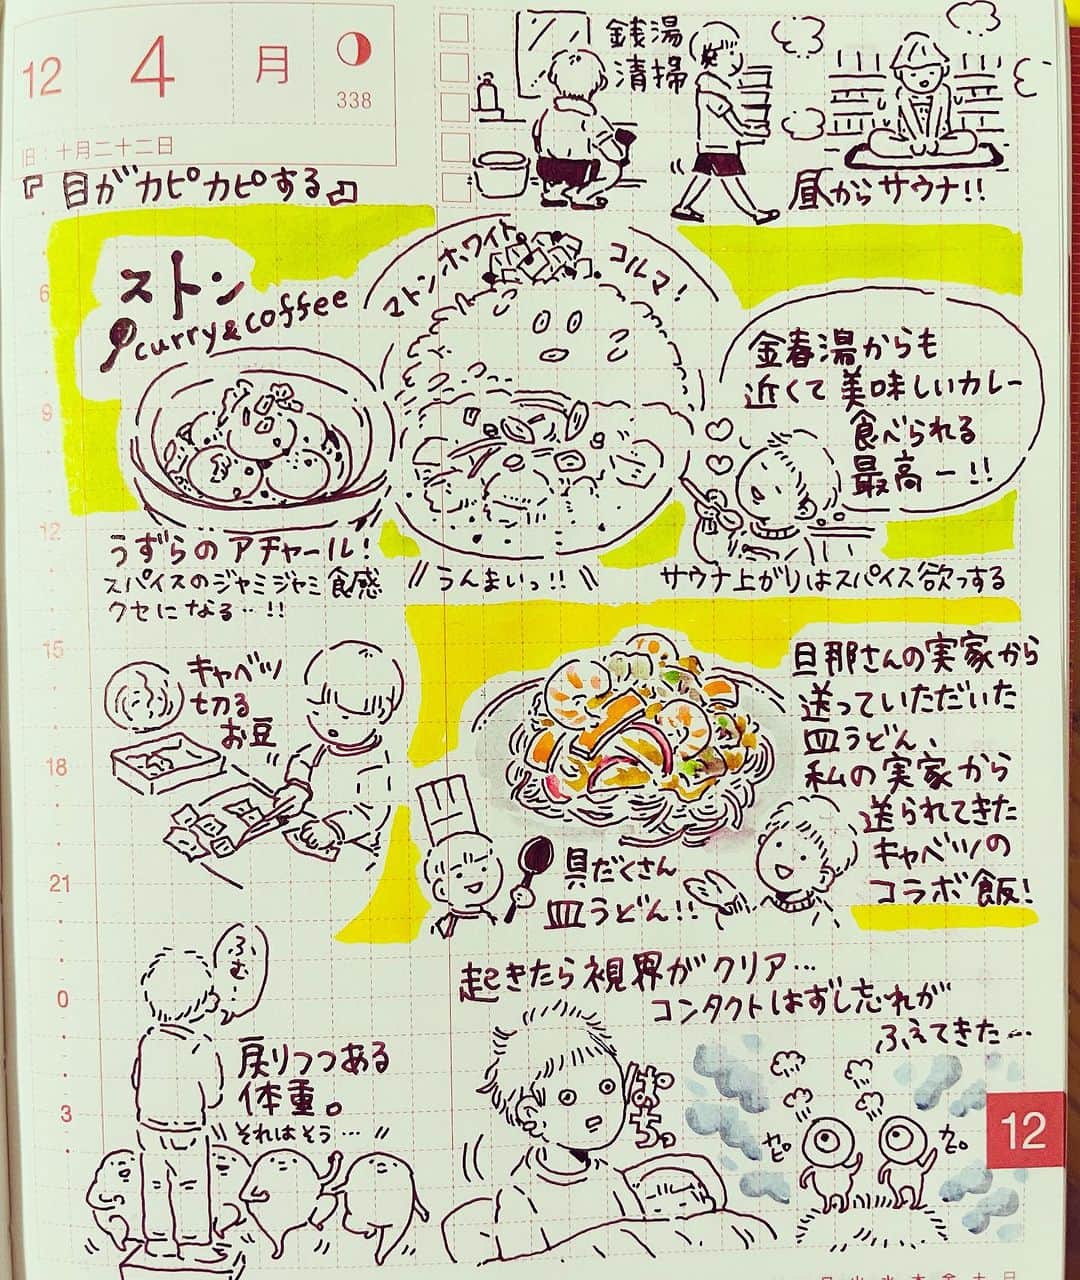 12 4 月
338
旧:十月二十二日
『目がカピカピする』
銭湯
清掃
昼からサウナ!!
ストン
curry&coffee
マトンホワイト
コルマ!
金春湯からも
近くて美味しいカレー
食べられる
最高ー!!
うずらのアチャール!
スパイスのジャミジャミ食感
クセになる…!!
うんまいっ!!
サウナ上がりはスパイス欲っする
キャベツ
切る
お豆
旦那さんの実家から
送っていただいた
皿うどん、
私の実家から
送られてきた
キャベツの
コラボ飯!
具だくさん
皿うどん!!
ふむ…
戻りつつある
体重。
それはそう…
起きたら視界がクリア…
コンタクトはずし忘れが
ふえてきた…
ぱちっ
カピ
カピ
6
9
12
15
18
21
0
3
12